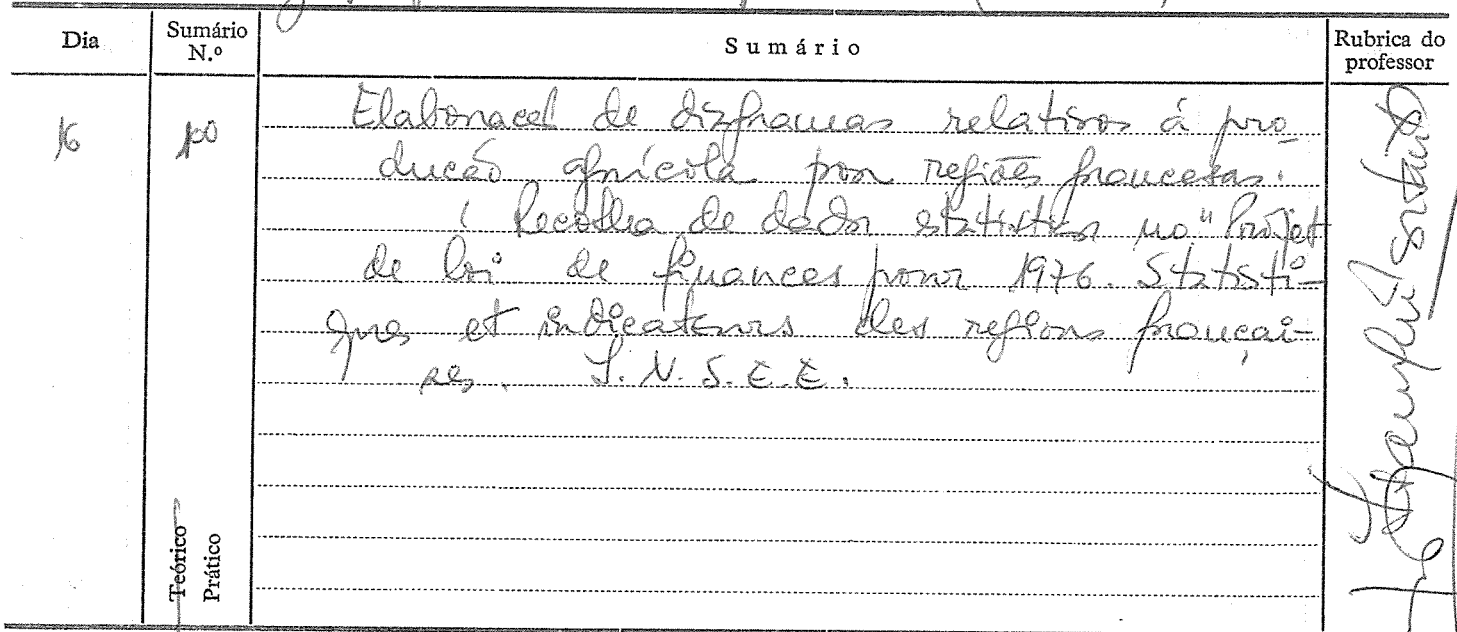 Dia
Sumário N.º
Sumário
Rubrica do professor
16
10
Elaboração de diagramas relativos á pro-
dução agrícola por regiões francesas.
Recolha de dados statisticos no "Projet
de loi de finances pour 1976. Statisti-
ques et indicateurs des regions françai-
ses. I.N.S.E.E.
Teórico
Prático